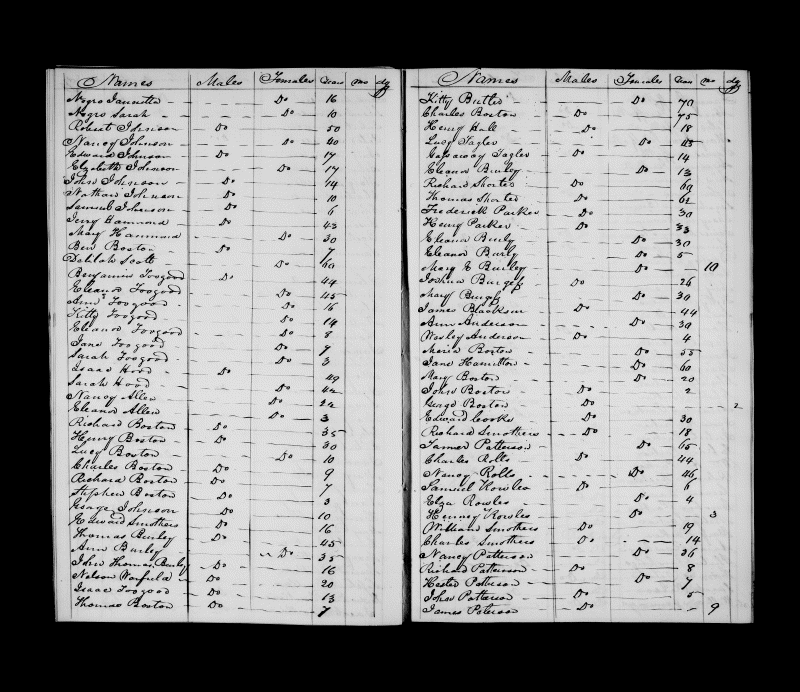 Names Males Females Years mo dy
Negro Jannetta - Do 16
Negro Sarah - Do 10
Robert Johnson Do 50
Nancy Johnson Do 40
Edward Johnson Do 17
Elizabeth Johnson Do 17
John Johnson Do 14
Nathan Johnson Do 10
Samuel Johnson Do 6
Jerry Hammond Do 43
Mary Hammond Do 30
Ben Boston Do 7
Delilah Scott Do 60
Benjamin Toogood Do 44
Eleanor Toogood Do 45
Ann Toogood Do 16
Kitty Toogood Do 14
Eleanor Toogood Do 8
Jane Toogood Do 7
Sarah Toogood Do 3
Isaac Hood Do 49
Sarah Hood Do 42
Nancy Allen Do 22
Eleanor Allen Do 3
Richard Boston Do 35
Henry Boston Do 30
Lucy Boston Do 10
Charles Boston Do 9
Richard Boston Do 7
Stephen Boston Do 3
George Johnson Do 10
Edward Smothers Do 16
Thomas Burley Do 45
Ann Burley Do 35
John Thomas Burley Do 16
Nelson Warfield Do 20
Isaac Toogood Do 13
Thomas Boston Do 7
Names Males Females Years mo dy
Kitty Butler Do 70
Charles Boston Do 75
Henry Hall Do 18
Lucy Do 45
Do 14
Eleanor Burley Do 13
Richard Shorter Do 60
Thomas Shorter Do 62
Frederick Parker Do 30
Henry Parker Do 33
Eleanor Burly Do 30
Eleanor Burly Do 5
Mary E Burley Do 10
Joshua Burgess Do 26
Mary Burgess Do 30
James Blackson Do 44
Ann Anderson Do 30
Wesley Anderson Do 4
Maria Boston Do 55
Jane Hamilton Do 60
Mary Boston Do 20
John Boston Do 2
George Boston Do 2
Edward Cooke Do 30
Richard Smothers Do 18
Tamer Patterson Do 65
Charles Rolls Do 44
Nancy Rolls Do 46
Samuel Rowles Do 6
Elza Rowles Do 4
Henney Rowles Do 3
William Smothers Do 19
Charles Smothers Do 14
Nancy Patterson Do 36
Richard Patterson Do 8
Hester Patterson Do 7
John Patterson Do 5
James Peterson Do - 9